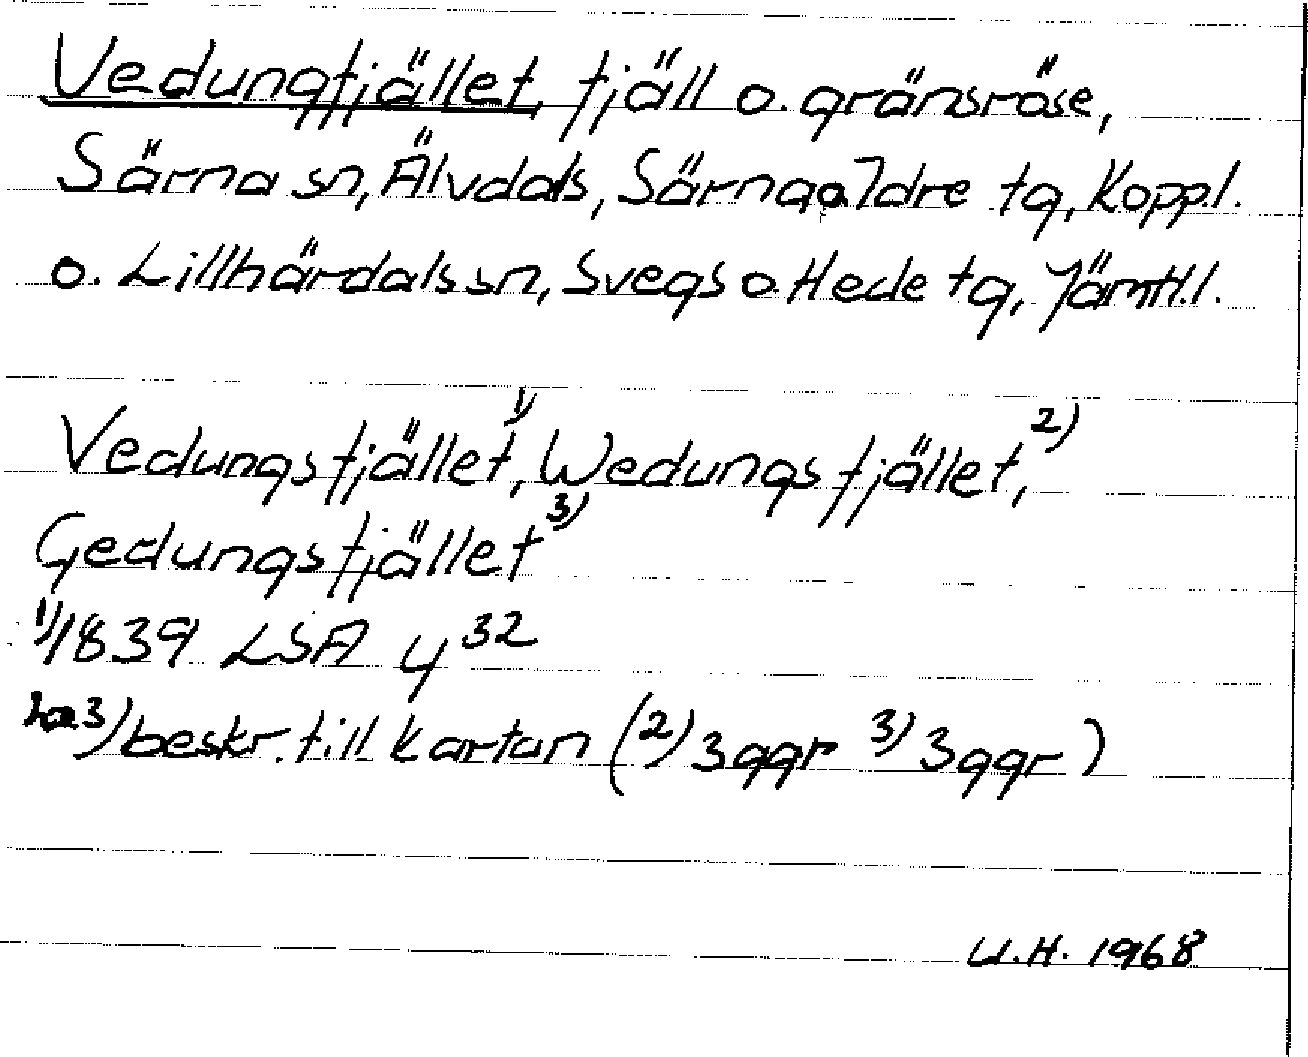 Vedungfjället, fjäll o. gränsröse,
Särna sn, Älvdals, Särna o. Idre tg, Kopp.l.
o. Lillhärdals sn, Svegs o Hede tg, Jämtl.l.
Vedungsfjället,1) Wedungsfjället,2)
Gedungsfjället3)
1) 1839 LSA y32
2 o 3) beskr. till kartan (2) 3ggr 3) 3ggr)
U.H. 1968